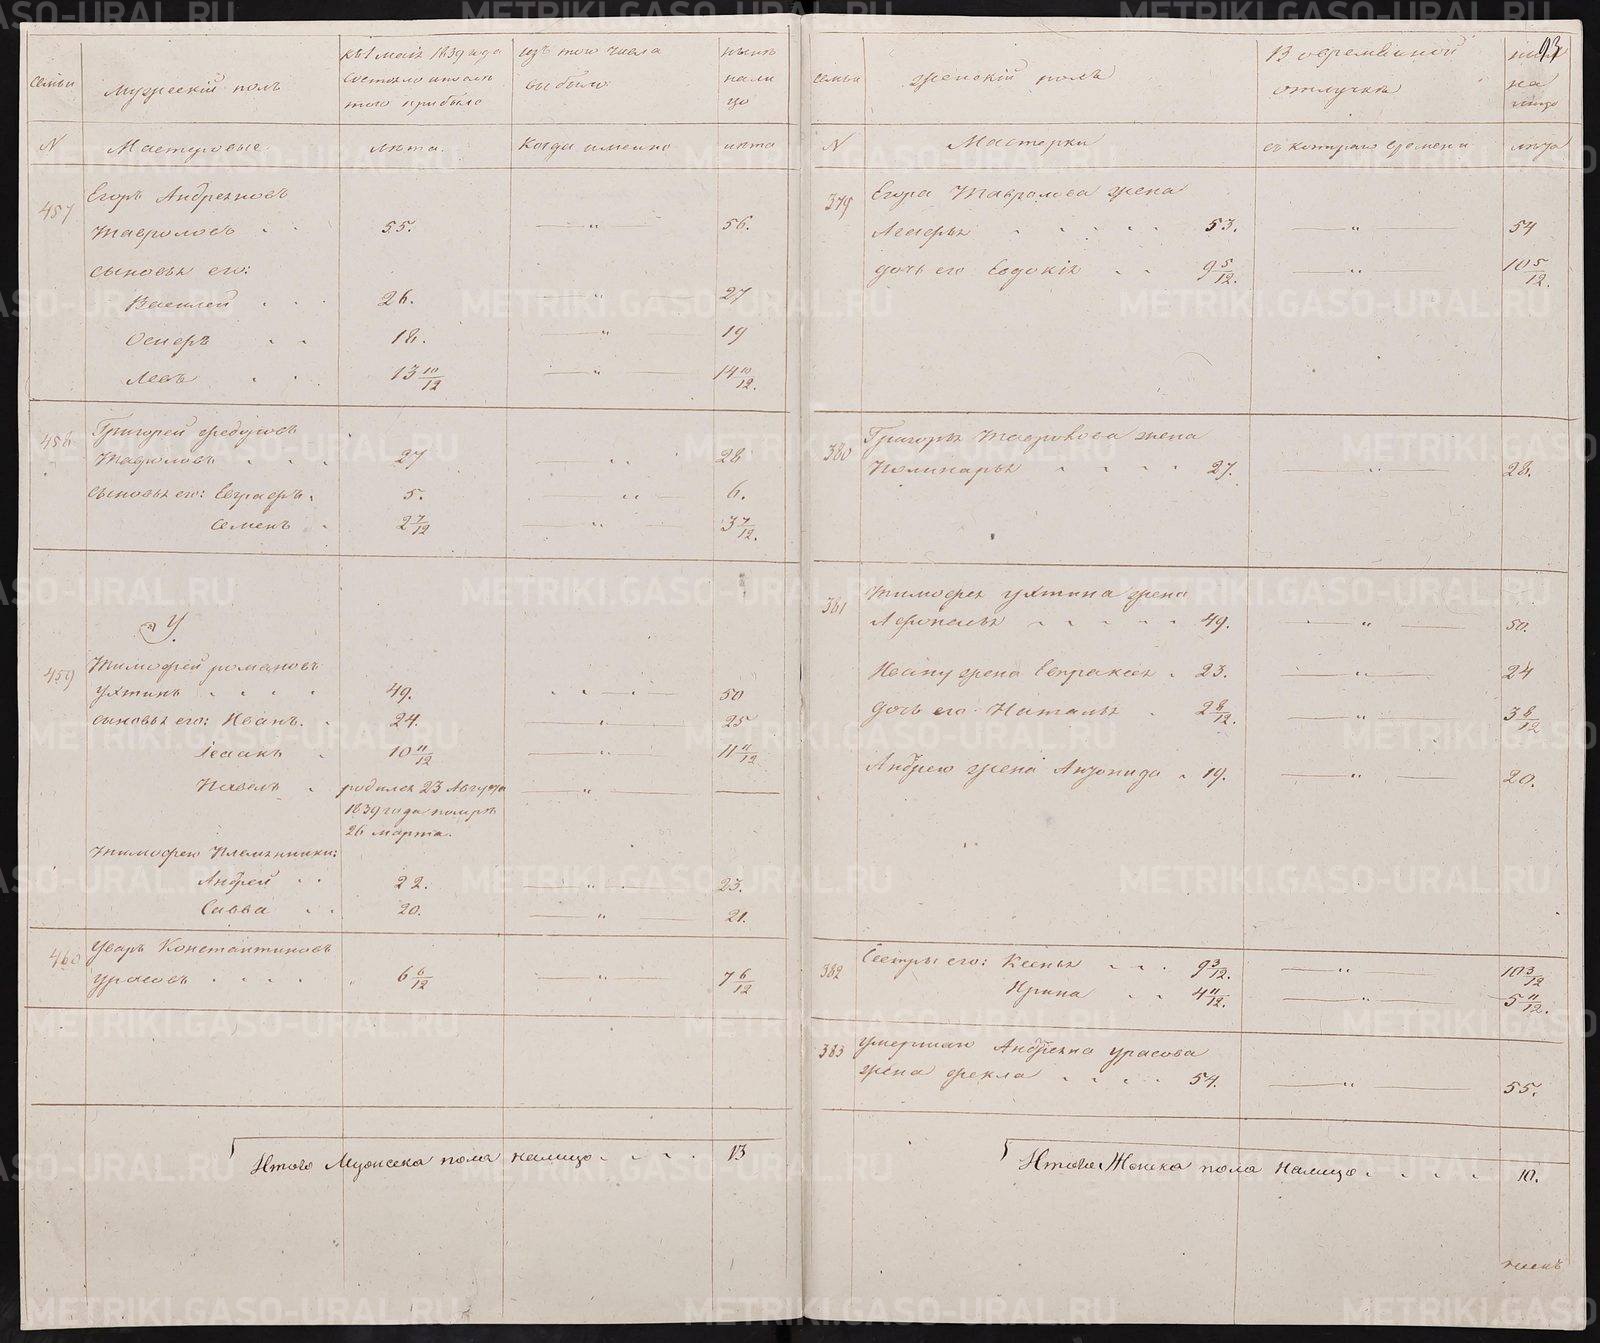 семьи
Мужескій полъ
къ 1 маія 1839 года
состояло и после
того прибыло
изъ того числа
выбыло
нынѣ
нали
цо
N
Мастеровые
лѣта.
Когда именно
лѣта
457
Егоръ Андреяновъ
Тавроловъ 55. — " — 56.
сыновья его:
Василей 26. — " — 27
18. — " — 19
Левъ 13 10/12 — " — 14 10/12.
458
Григорей Федоровъ
27 — " — 28
сыновья его: Евграфъ 5. — " — 6.
Семенъ 2 7/12 — " — 3 7/12.
У.
459
Тимофей романовъ
ухтинъ 49. — 50
сыновья его: Иванъ. 24. — " — 25
Исаакъ 10 11/12 — " — 11 11/12
Павелъ родился 23 Августа — " —
1839 года помре
26 марта.
Тимофею Племянники:
Андрей 22. — " — 23.
Савва 20. — " — 21.
460
Уваръ Константиновъ
урасовъ 6 6/12 — " — 7 6/12
Итого Мужска пола налицо 13
93
семьи
женскій полъ
В овременной
отлучкѣ
на
лицо
N
Мастерки
съ котораго времени
лѣта
379
Егора Тавролова жена
Агафья 53. — " — 54
дочь его Евдокія 9 5/12. — " — 10 5/12.
380
Григорья жена
27. — " — 28.
381
Тимофея ухтина жена
Афонасья 49. — " — 50.
Ивану жена Евпраксея 23. — " — 24
дочь его Наталья 2 8/12. — " — 3 8/12
Андрею жена 19. — " — 20.
382
Сестры его: Ксенья 9 3/12. — " — 10 3/12
Ирина 4 11/12. — " — 5 11/12.
383
умершаго Андреяна урасова
жена фекла 54. — " — 55.
Итого Женска пола налицо 10.
METRIKI.GASO-URAL.RU